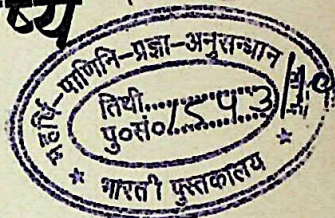 ष्य
महर्षि-पाणिनि-प्रज्ञा-अनुसन्धान
तिथी..............
पु०सं०1593
* भारती पुस्तकालय *